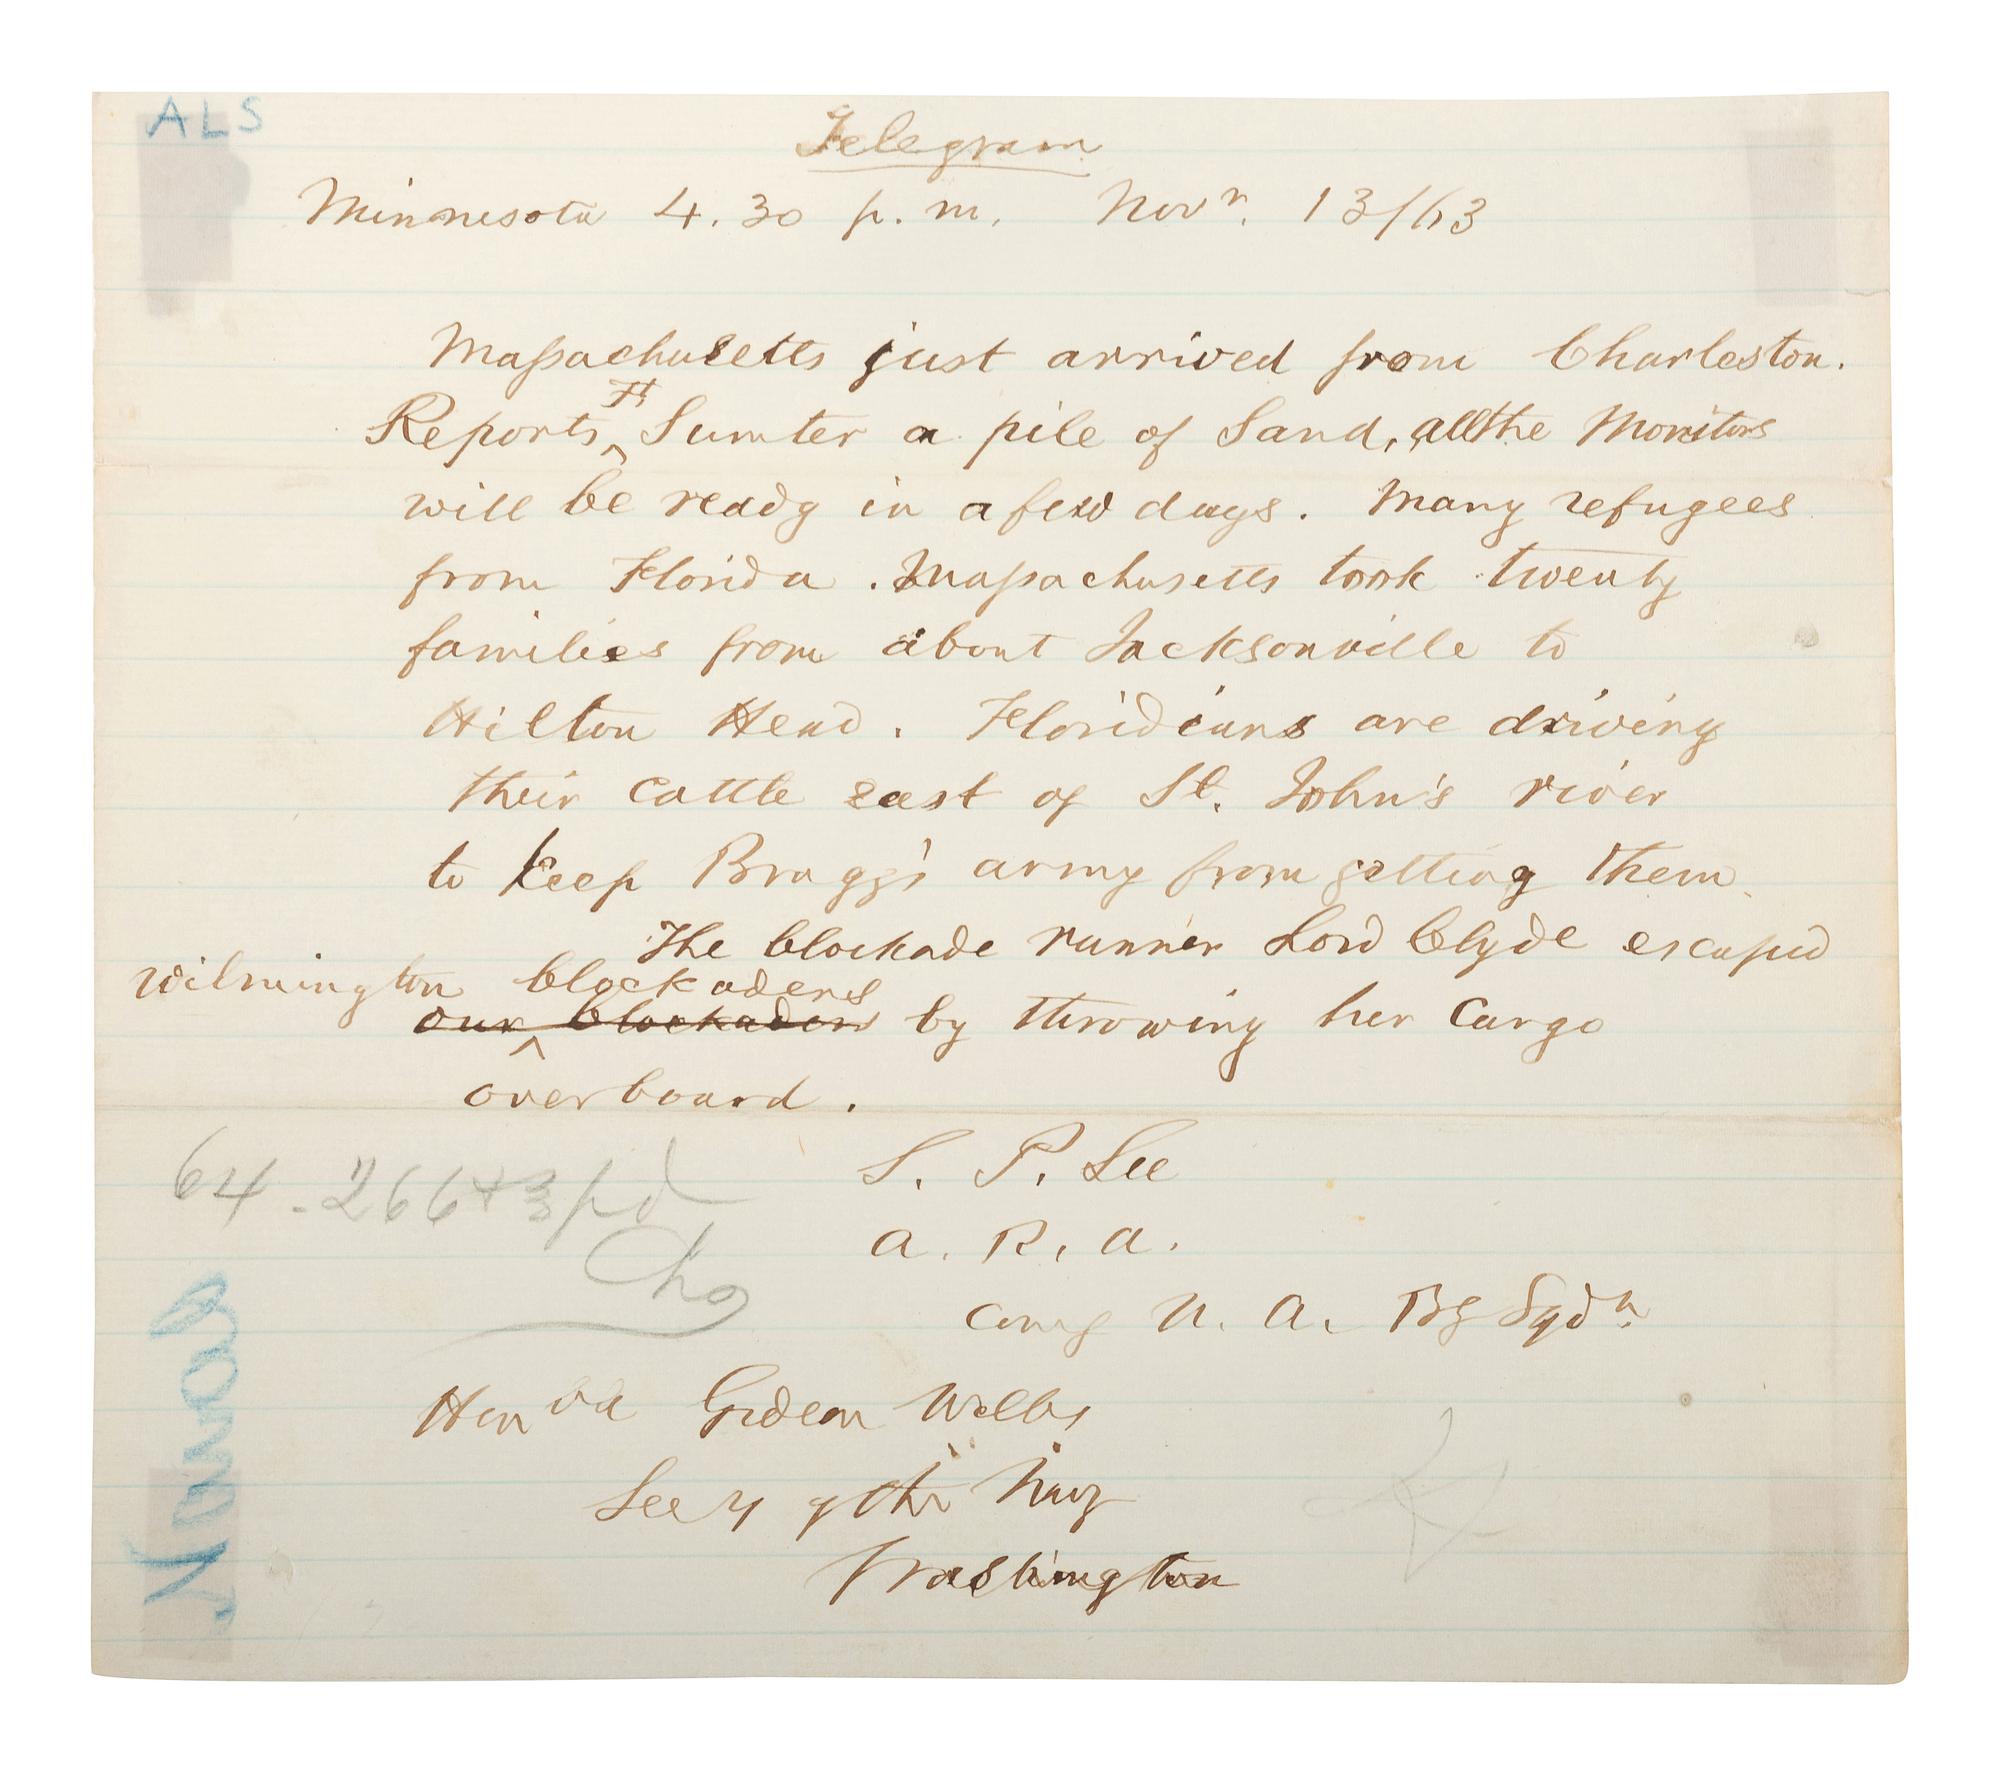 ALS
Telegram
Minnesota 4.30 p.m. Novr. 13/63
Massachusetts just arrived from Charleston.
Reports Ft Sumter a pile of Sand, all the Monitors
will be ready in a few days. Many refugees
from Florida. Massachusetts took twenty
families from about Jacksonville to
Hilton Head. Floridians are driving
their cattle east of St. John's river
to keep Bragg's army from getting them.
The blockade runner Lord Clyde escaped
Wilmington blockaders
our blockaders by throwing her Cargo
overboard.
S. P. Lee
a. R. a.
Comg N. A. Bg Sqdn.
64 - 266 + 3 pd
Chg
Honble Gideon Welles
Secy of the Navy
Washington
Naval